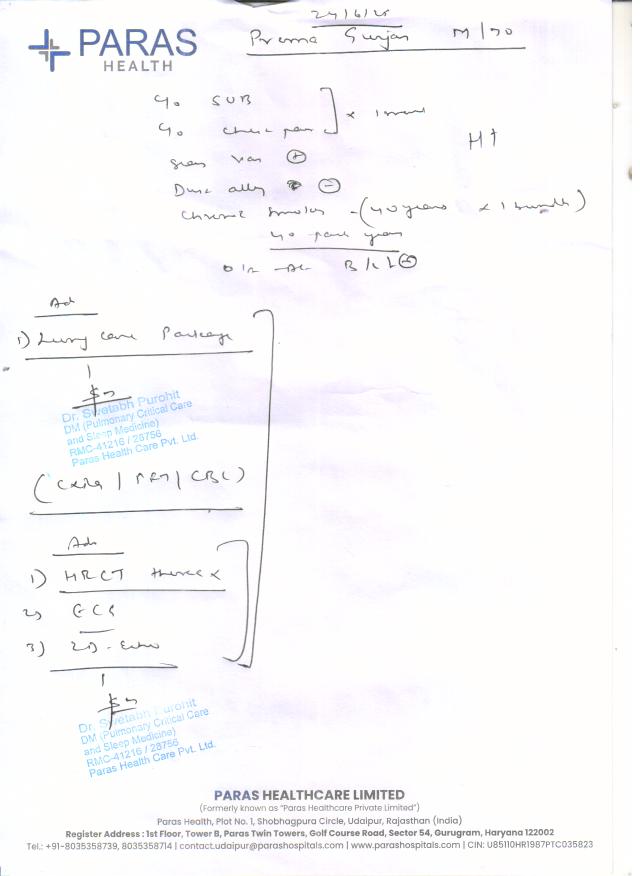 24/6/25
PARAS
HEALTH
Prema Gurjar M/70
c/o SOB
c/o chest pain x 1 month
HT
+
Dust allergy -
Chronic Smoker - (40 years x 1 bundle)
40 pack years
O/E - AE B/L
Ad
1) Lung Care Package
Dr. Swetabh Purohit
DM (Pulmonary Critical Care
and Sleep Medicine)
RMC-41216 / 28756
Paras Health Care Pvt. Ltd.
(CXR / PFT / CBC)
Adv
1) HRCT thorax
2) ECG
3) 2D-Echo
Dr. Swetabh Purohit
DM (Pulmonary Critical Care
and Sleep Medicine)
RMC-41216 / 28756
Paras Health Care Pvt. Ltd.
PARAS HEALTHCARE LIMITED
(Formerly known as "Paras Healthcare Private Limited")
Paras Health, Plot No. 1, Shobhagpura Circle, Udaipur, Rajasthan (India)
Register Address : 1st Floor, Tower B, Paras Twin Towers, Golf Course Road, Sector 54, Gurugram, Haryana 122002
Tel.: +91-8035358739, 8035358714 | contact.udaipur@parashospitals.com | www.parashospitals.com | CIN: U85110HR1987PTC035823